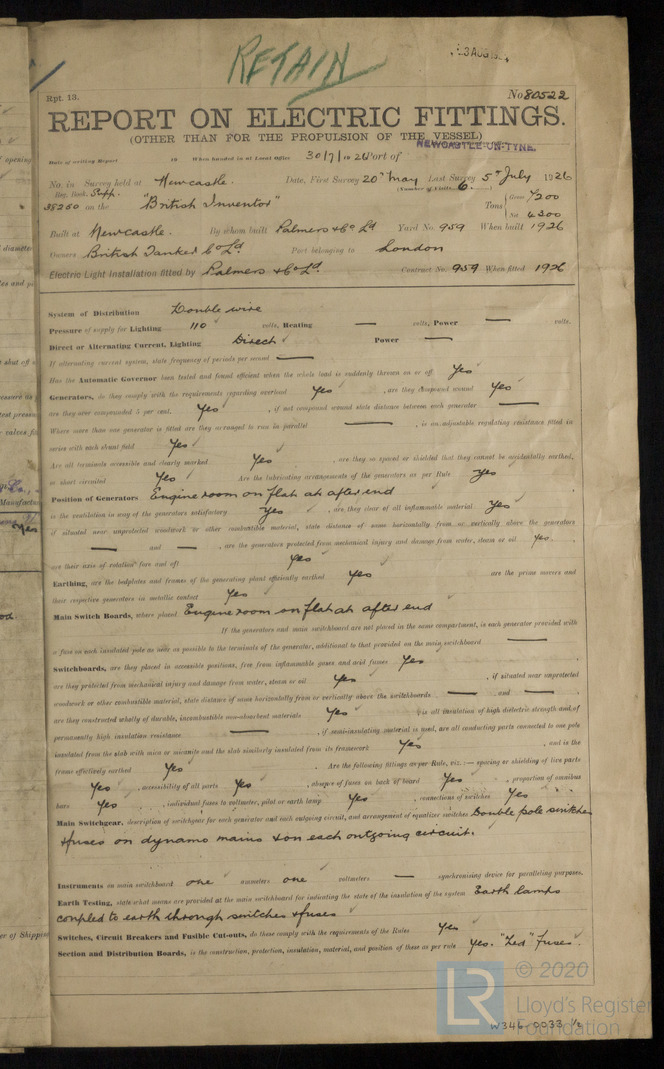 RETAIN
Rpt. 13.
No 80522
REPORT ON ELECTRIC FITTINGS.
(OTHER THAN FOR THE PROPULSION OF THE VESSEL)
NEWCASTLE-ON-TYNE.
Date of writing Report 19 When handed in at Local Office 30/7/1926 Port of
No. in Survey held at Newcastle. Date, First Survey 20th May Last Survey 5th July 1926
Reg. Book. Supp. (Number of Visits 6.)
38250 on the "British Inventor" Tons Gross 7200
Net 4300
Built at Newcastle. By whom built Palmers & Co Ld Yard No. 959 When built 1926
Owners British Tanker Co Ld. Port belonging to London
Electric Light Installation fitted by Palmers & Co Ld. Contract No. 959 When fitted 1926
System of Distribution Double wire
Pressure of supply for Lighting 110 volts, Heating — volts, Power — volts.
Direct or Alternating Current, Lighting Direct Power —
If alternating current system, state frequency of periods per second —
Has the Automatic Governor been tested and found efficient when the whole load is suddenly thrown on or off Yes
Generators, do they comply with the requirements regarding overload Yes, are they compound wound Yes
are they over compounded 5 per cent. Yes, if not compound wound state distance between each generator —
Where more than one generator is fitted are they arranged to run in parallel —, is an adjustable regulating resistance fitted in
series with each shunt field Yes
Are all terminals accessible and clearly marked Yes, are they so spaced or shielded that they cannot be accidentally earthed,
or short circuited Yes Are the lubricating arrangements of the generators as per Rule Yes
Position of Generators Engine room on flat at after end
is the ventilation in way of the generators satisfactory Yes, are they clear of all inflammable material Yes
if situated near unprotected woodwork or other combustible material, state distance of same horizontally from or vertically above the generators
— and —, are the generators protected from mechanical injury and damage from water, steam or oil Yes.
are their axis of rotation fore and aft Yes
Earthing, are the bedplates and frames of the generating plant efficiently earthed Yes are the prime movers and
their respective generators in metallic contact Yes
Main Switch Boards, where placed Engine room on flat at after end
If the generators and main switchboard are not placed in the same compartment, is each generator provided with
a fuse on each insulated pole as near as possible to the terminals of the generator, additional to that provided on the main switchboard —
Switchboards, are they placed in accessible positions, free from inflammable gases and acid fumes Yes
are they protected from mechanical injury and damage from water, steam or oil Yes, if situated near unprotected
woodwork or other combustible material, state distance of same horizontally from or vertically above the switchboards — and —
are they constructed wholly of durable, incombustible non-absorbent materials Yes, is all insulation of high dielectric strength and of
permanently high insulation resistance —, if semi-insulating material is used, are all conducting parts connected to one pole
insulated from the slab with mica or micanite and the slab similarly insulated from its framework Yes, and is the
frame effectively earthed Yes Are the following fittings as per Rule, viz.:— spacing or shielding of live parts
Yes, accessibility of all parts Yes, absence of fuses on back of board Yes, proportion of omnibus
bars Yes, individual fuses to voltmeter, pilot or earth lamp Yes, connections of switches Yes
Main Switchgear, description of switchgear for each generator and each outgoing circuit, and arrangement of equalizer switches Double pole switches
& fuses on dynamo mains & on each outgoing circuit.
Instruments on main switchboard one ammeters one voltmeters — synchronising device for paralleling purposes.
Earth Testing, state what means are provided at the main switchboard for indicating the state of the insulation of the system Earth lamps
coupled to earth through switches & fuses
Switches, Circuit Breakers and Fusible Cut-outs, do these comply with the requirements of the Rules Yes
Section and Distribution Boards, is the construction, protection, insulation, material, and position of these as per rule Yes. "Zed" fuses.
LR
© 2020
Lloyd's Register
Foundation
W346-0033 1/2